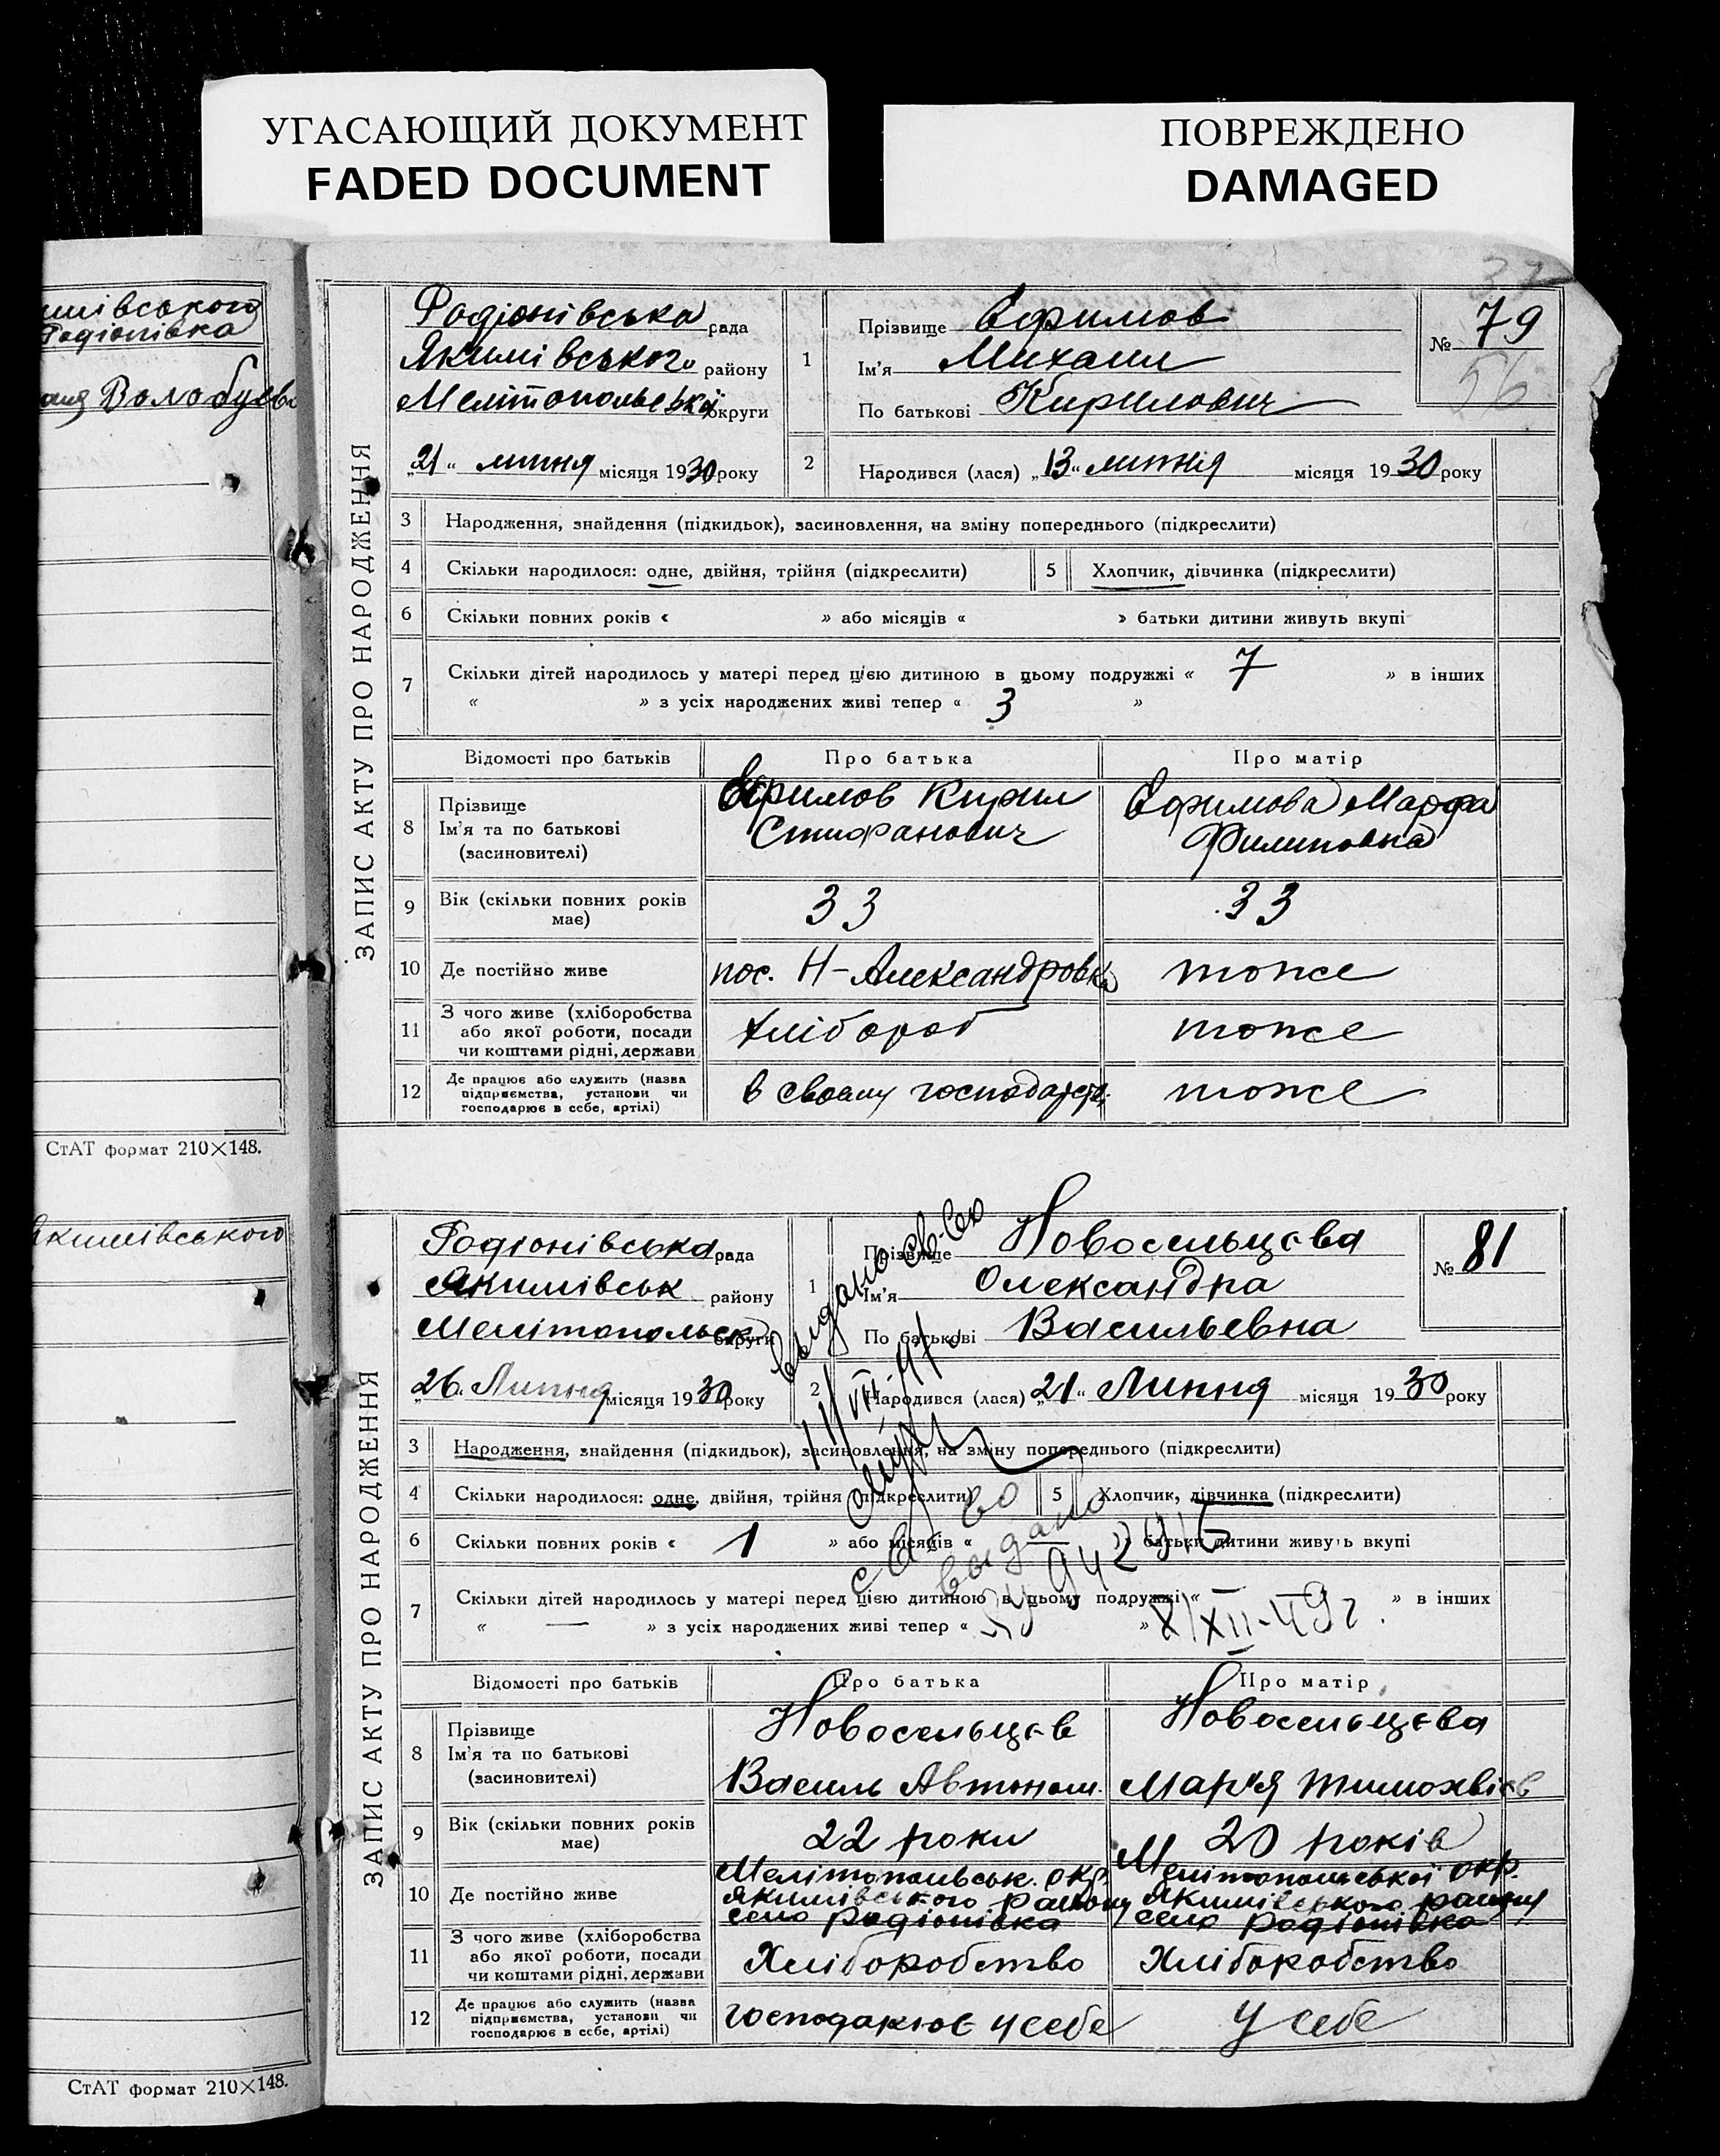 УГАСАЮЩИЙ ДОКУМЕНТ
FADED DOCUMENT
ПОВРЕЖДЕНО
DAMAGED
Родіонівка
Волобуєв
СтАТ формат 210×148.
Якимівського
СтАТ формат 210×148.
37
ЗАПИС АКТУ ПРО НАРОДЖЕННЯ
Родіонівська рада
Якимівського району
Мелітопольської округи
„21“ липня місяця 1930 року
1
Прізвище Ефимов
Ім'я Михаил
По батькові Кирилович
№ 79
56
2
Народився (лася) „13“ липня місяця 1930 року
3 Народження, знайдення (підкидьок), засиновлення, на зміну попереднього (підкреслити)
4 Скільки народилося: одне, двійня, трійня (підкреслити) 5 Хлопчик, дівчинка (підкреслити)
6 Скільки повних років « » або місяців « » батьки дитини живуть вкупі
7 Скільки дітей народилось у матері перед цією дитиною в цьому подружжі « 7 » в інших
« » з усіх народжених живі тепер « 3 »
Відомості про батьків Про батька Про матір
8 Прізвище
Ім'я та по батькові
(засиновителі)
Ефимов Кирил
Стифанович
Ефимова Марфа
Филиповна
9 Вік (скільки повних років має) 33 33
10 Де постійно живе пос. Н-Александровка тоже
11 З чого живе (хліборобства
або якої роботи, посади
чи коштами рідні, держави
хлібороб тоже
12 Де працює або служить (назва
підприємства, установи чи
господарює в себе, артілі)
в своему господарстві тоже
ЗАПИС АКТУ ПРО НАРОДЖЕННЯ
Родіонівська рада
Якимівськ району
Мелітопольськ округи
„26“ Липня місяця 1930 року
1
Прізвище Новосельцєва
Ім'я Олександра
По батькові Васильевна
№ 81
2
Народився (лася) „21“ Липня місяця 1930 року
выдано св-во
3 Народження, знайдення (підкидьок), засиновлення, на зміну попереднього (підкреслити)
4 Скільки народилося: одне, двійня, трійня (підкреслити) 5 Хлопчик, дівчинка (підкреслити)
6 Скільки повних років « 1 » або місяців « — » батьки дитини живуть вкупі
св во
выдано
7 Скільки дітей народилось у матері перед цією дитиною в цьому подружжі « » в інших
« — » з усіх народжених живі тепер « »
XII-49г.
Відомості про батьків Про батька Про матір
8 Прізвище
Ім'я та по батькові
(засиновителі)
Новосельцєв
Василь Автоном.
Новосельцєва
Мар'я Тимохвієв
9 Вік (скільки повних років має) 22 роки 20 років
10 Де постійно живе
Мелітопольськ. окр.
Якимівського району
село Родіонівка
Мелітопольської окр.
Якимівського району
село Родіонівка
11 З чого живе (хліборобства
або якої роботи, посади
чи коштами рідні, держави
Хліборобство Хліборобство
12 Де працює або служить (назва
підприємства, установи чи
господарює в себе, артілі)
господарює у себе У себе